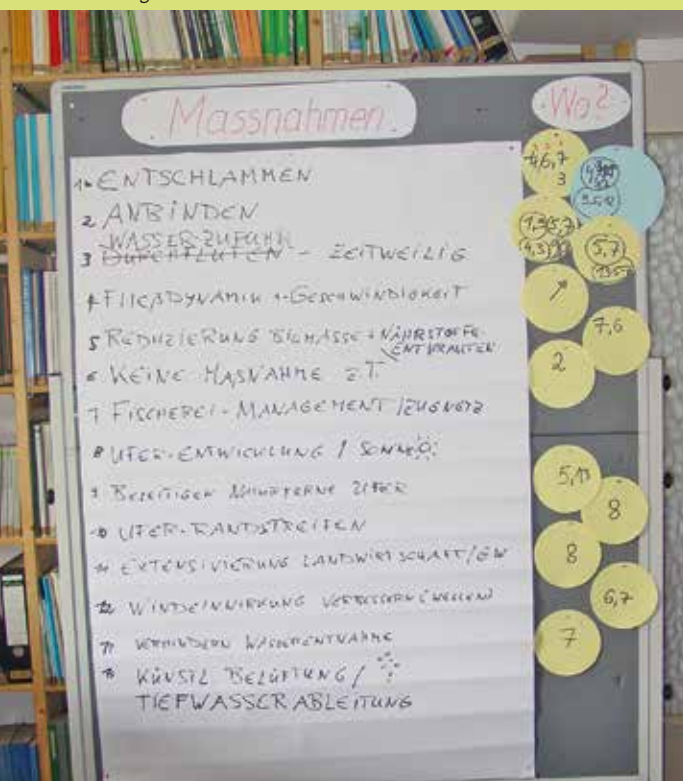 Massnahmen
Wo?
1. ENTSCHLAMMEN
2 ANBINDEN
WASSER-ZUFUHR
3 DURCHFLUTEN - ZEITWEILIG
4 FLIEßDYNAMIK + -GESCHWINDIGKEIT
5 REDUZIERUNG BIOMASSE + NÄHRSTOFFE
ENTKRAUTEN
6 KEINE MASNAHME Z.T.
7 FISCHEREI-MANAGEMENT / ZUGNETZ
8 UFER-ENTWICKLUNG / SONNE
9 BESEITIGEN NATURFERNE UFER
10 UFER-RANDSTREIFEN
11 EXTENSIVIERUNG LANDWIRTSCHAFT/
12 WINDEINWIRKUNG VERBESSERN (WELLEN)
VERHINDERN WASSERENTNAHME
KÜNSTL BELÜFTUNG /
TIEFWASSERABLEITUNG
4,6,7
3
5,7
7,6
2
5,
8
8
6,7
7